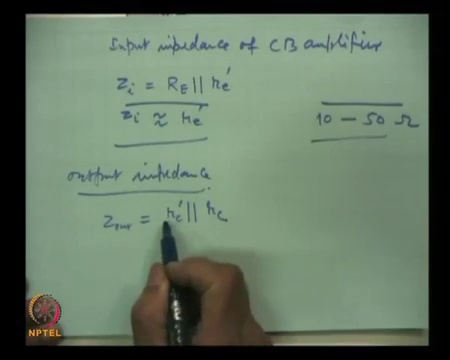 Input impedance of CB amplifier
Zi = RE || re'
Zi ≈ re'
10 - 50 Ω
output impedance
Zout = rc' || rc
NPTEL